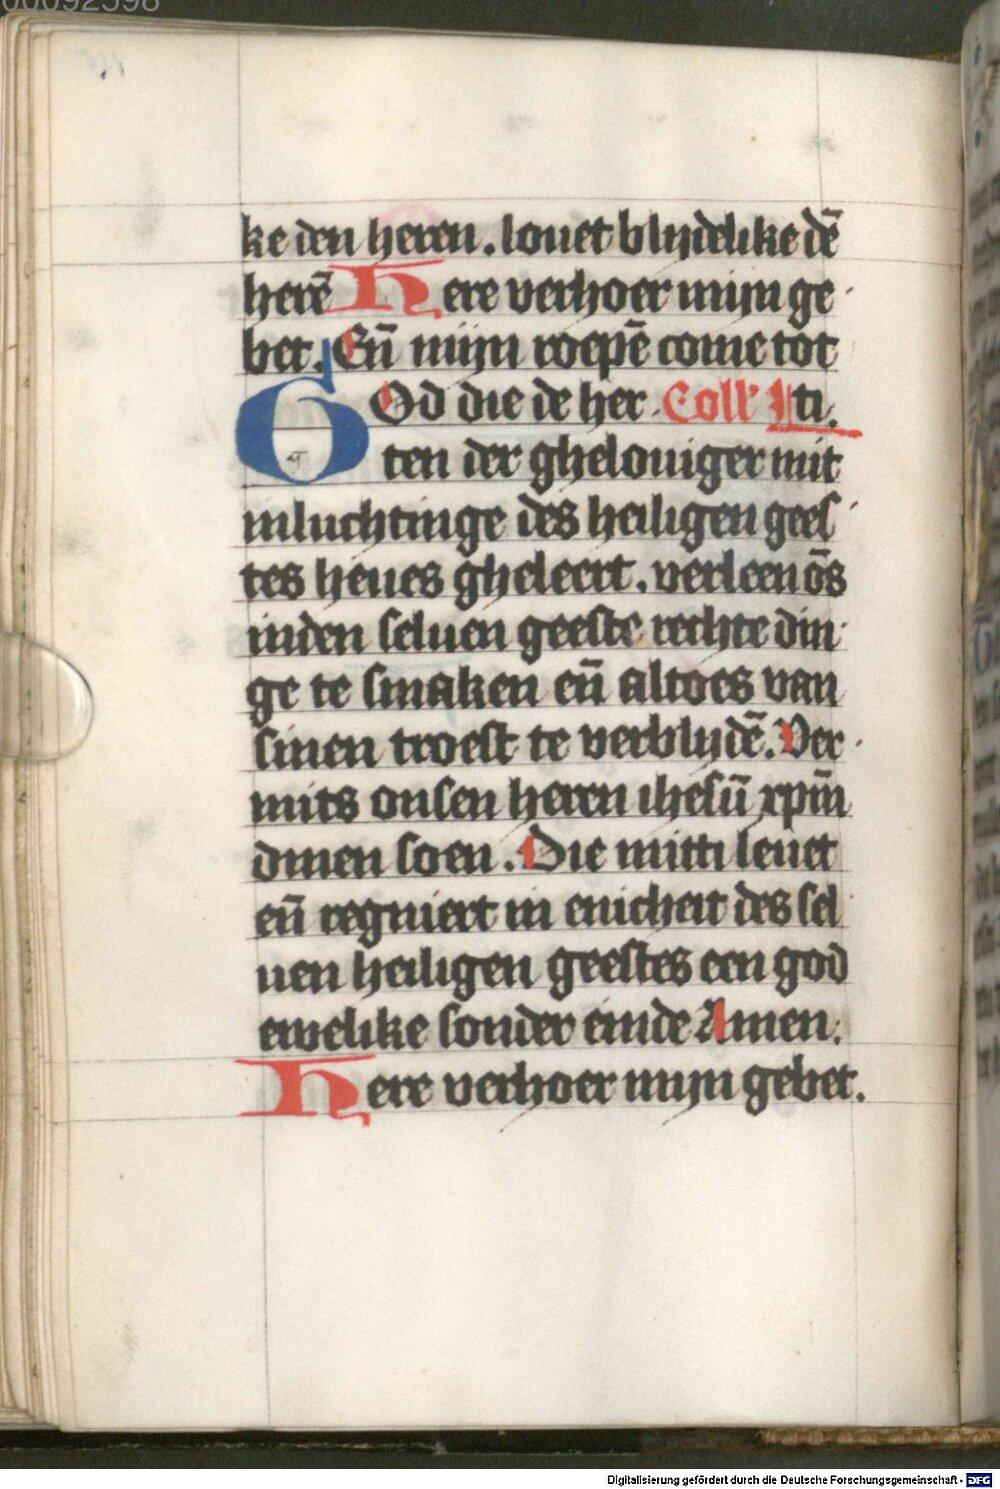 00092598
ke den heren. louet blijdelike dē
herē Here verhoer mijn ge
bet. Eñ mijn roepē come tot
GOd die de her Coll' ti.
ten der gheloui ger mit
inluchtinge des heiligen gees
tes heues gheleert. verleen ōs
inden seluen geeste rechte din
ge te smaken eñ altoes van
sinen troest te verblijdē. Ver
mits onsen heren ihesū xpm̄
dinen soen. Die mitti leuet
eñ regniert in enicheit des sel
uen heiligen geestes een god
ewelike sonder einde Amen.
Here verhoer mijn gebet.
Digitalisierung gefördert durch die Deutsche Forschungsgemeinschaft - DFG